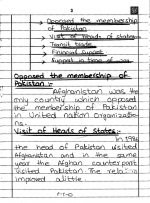 3
Opposed the membership
of Pakistan
Visit of Heads of states
Transit trade
Financial support
Support in time of war
Opposed the membership of
Pakistan :-
Afghanistan was the
only country which opposed
the membership of Pakistan
in United nation organizatio-
ns.
Visit of Heads of States:-
in 1986
the head of Pakistan visited
Afghanistan and in the same
year the Afghan counter part
visited Pakistan. The rela
improved alittle.